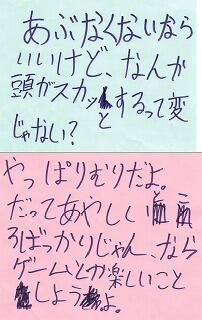 あぶなくないなら
いいけど、なんか
頭がスカッとするって変
じゃない?
やっぱりむりだよ。
だってあやしいところ
ばっかりじゃん、なら
ゲームとか楽しいこと
しようよ。